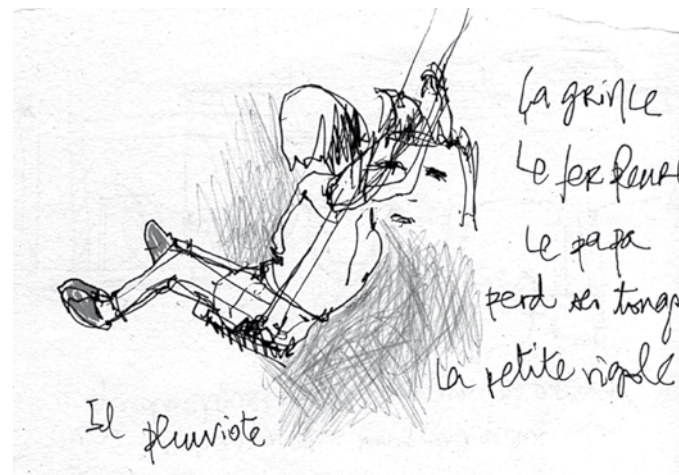 Ça grince
Le fer
Le papa
perd ses tongs
La petite rigole
Il pluviote